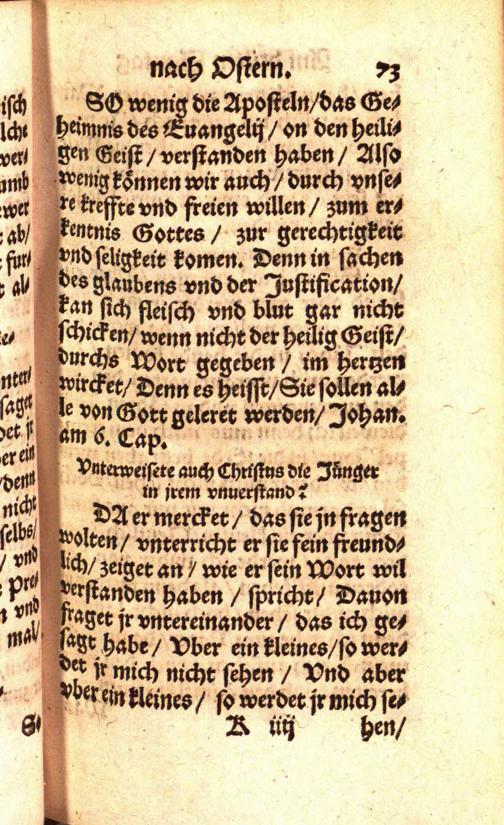 nach Ostern. 73
SO wenig die Aposteln/das Ge⸗
heimnis des Euangelij/ on den heili⸗
gen Geist/ verstanden haben/ Also
wenig können wir auch/ durch vnse⸗
re kreffte vnd freien willen/ zum er⸗
kentnis Gottes/ zur gerechtigkeit
vnd seligkeit komen. Denn in sachen
des glaubens vnd der Justification/
kan sich fleisch vnd blut gar nicht
schicken/ wenn nicht der heilig Geist/
durchs Wort gegeben/ im hertzen
wircket/ Denn es heisst/Sie sollen al⸗
le von Gott geleret werden/ Johan.
am 6. Cap.
Vnterweisete auch Christus die Jünger
in jrem vnuerstand?
DA er mercket/ das sie jn fragen
wolten/ vnterricht er sie fein freund⸗
lich/ zeiget an/ wie er sein Wort wil
verstanden haben/ spricht/ Dauon
fraget jr vntereinander/ das ich ge⸗
sagt habe/ Vber ein kleines/so wer⸗
det jr mich nicht sehen/ Vnd aber
vber ein kleines/ so werdet jr mich se⸗
K iiij hen/